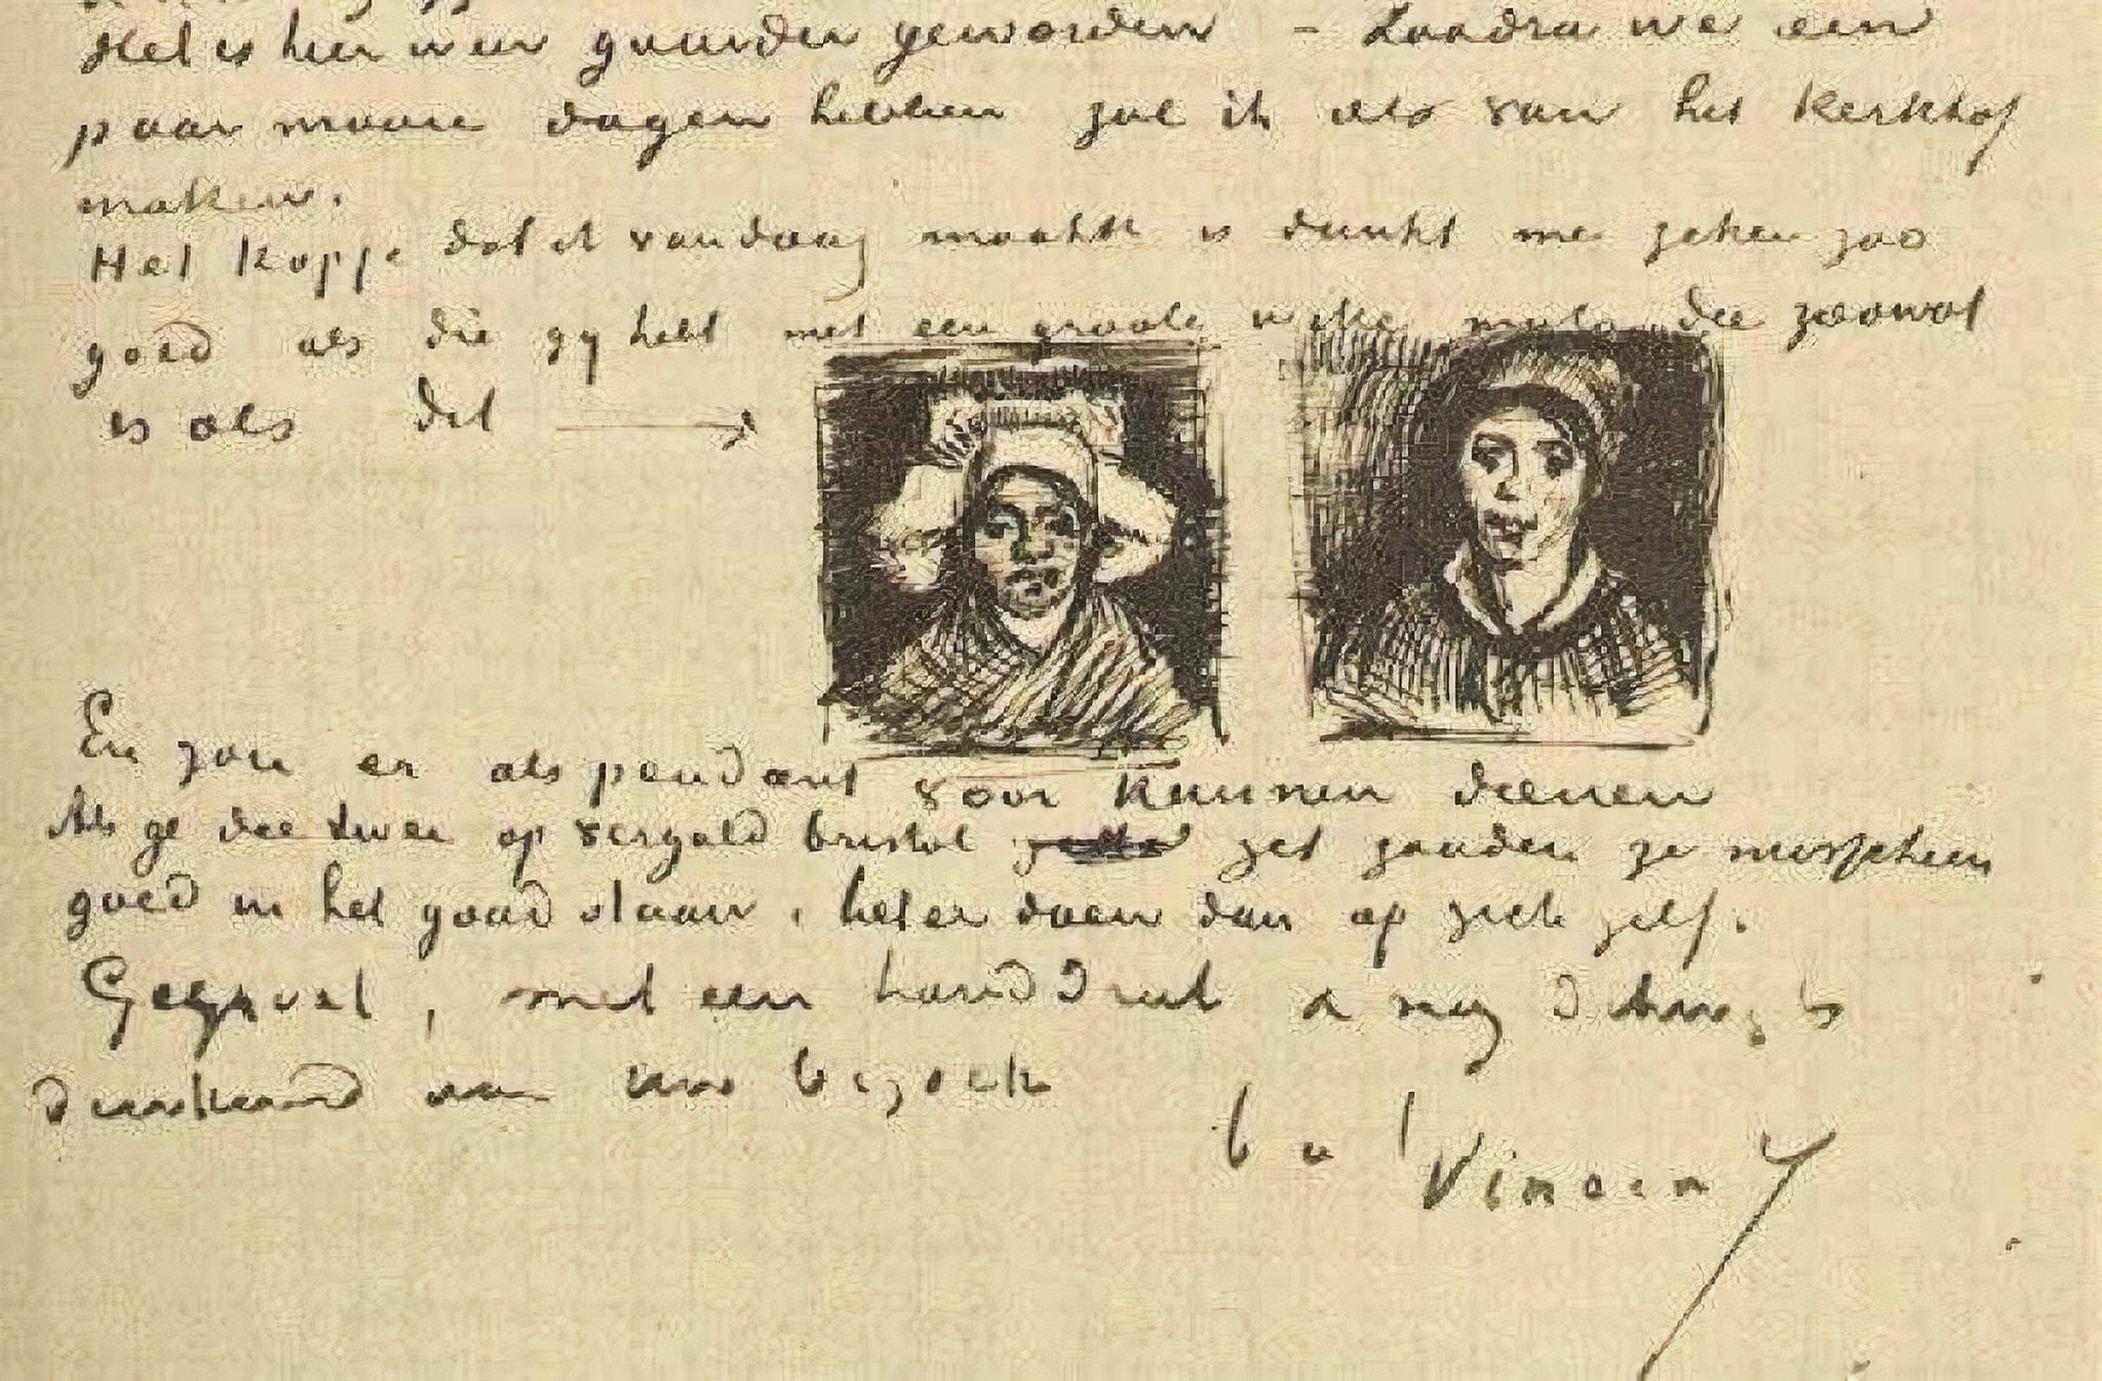 Het is hier weer guurder geworden – Zoodra we een
paar mooie dagen hebben zal ik iets van het Kerkhof
maken.
Het Kopje dat ik vandaag maakte is dunkt me zeker zoo
goed als die gy hebt met een groote witte muts die zoowat
is als dit
En zou er als pendant voor Kunnen dienen
Als ge die twee op verguld bristol zet zouden ze misschien
goed in het goud staan, beter doen dan op zich zelf.
Gegroet, met een handdruk & nog
dankend voor uw bezoek
b a t Vincent